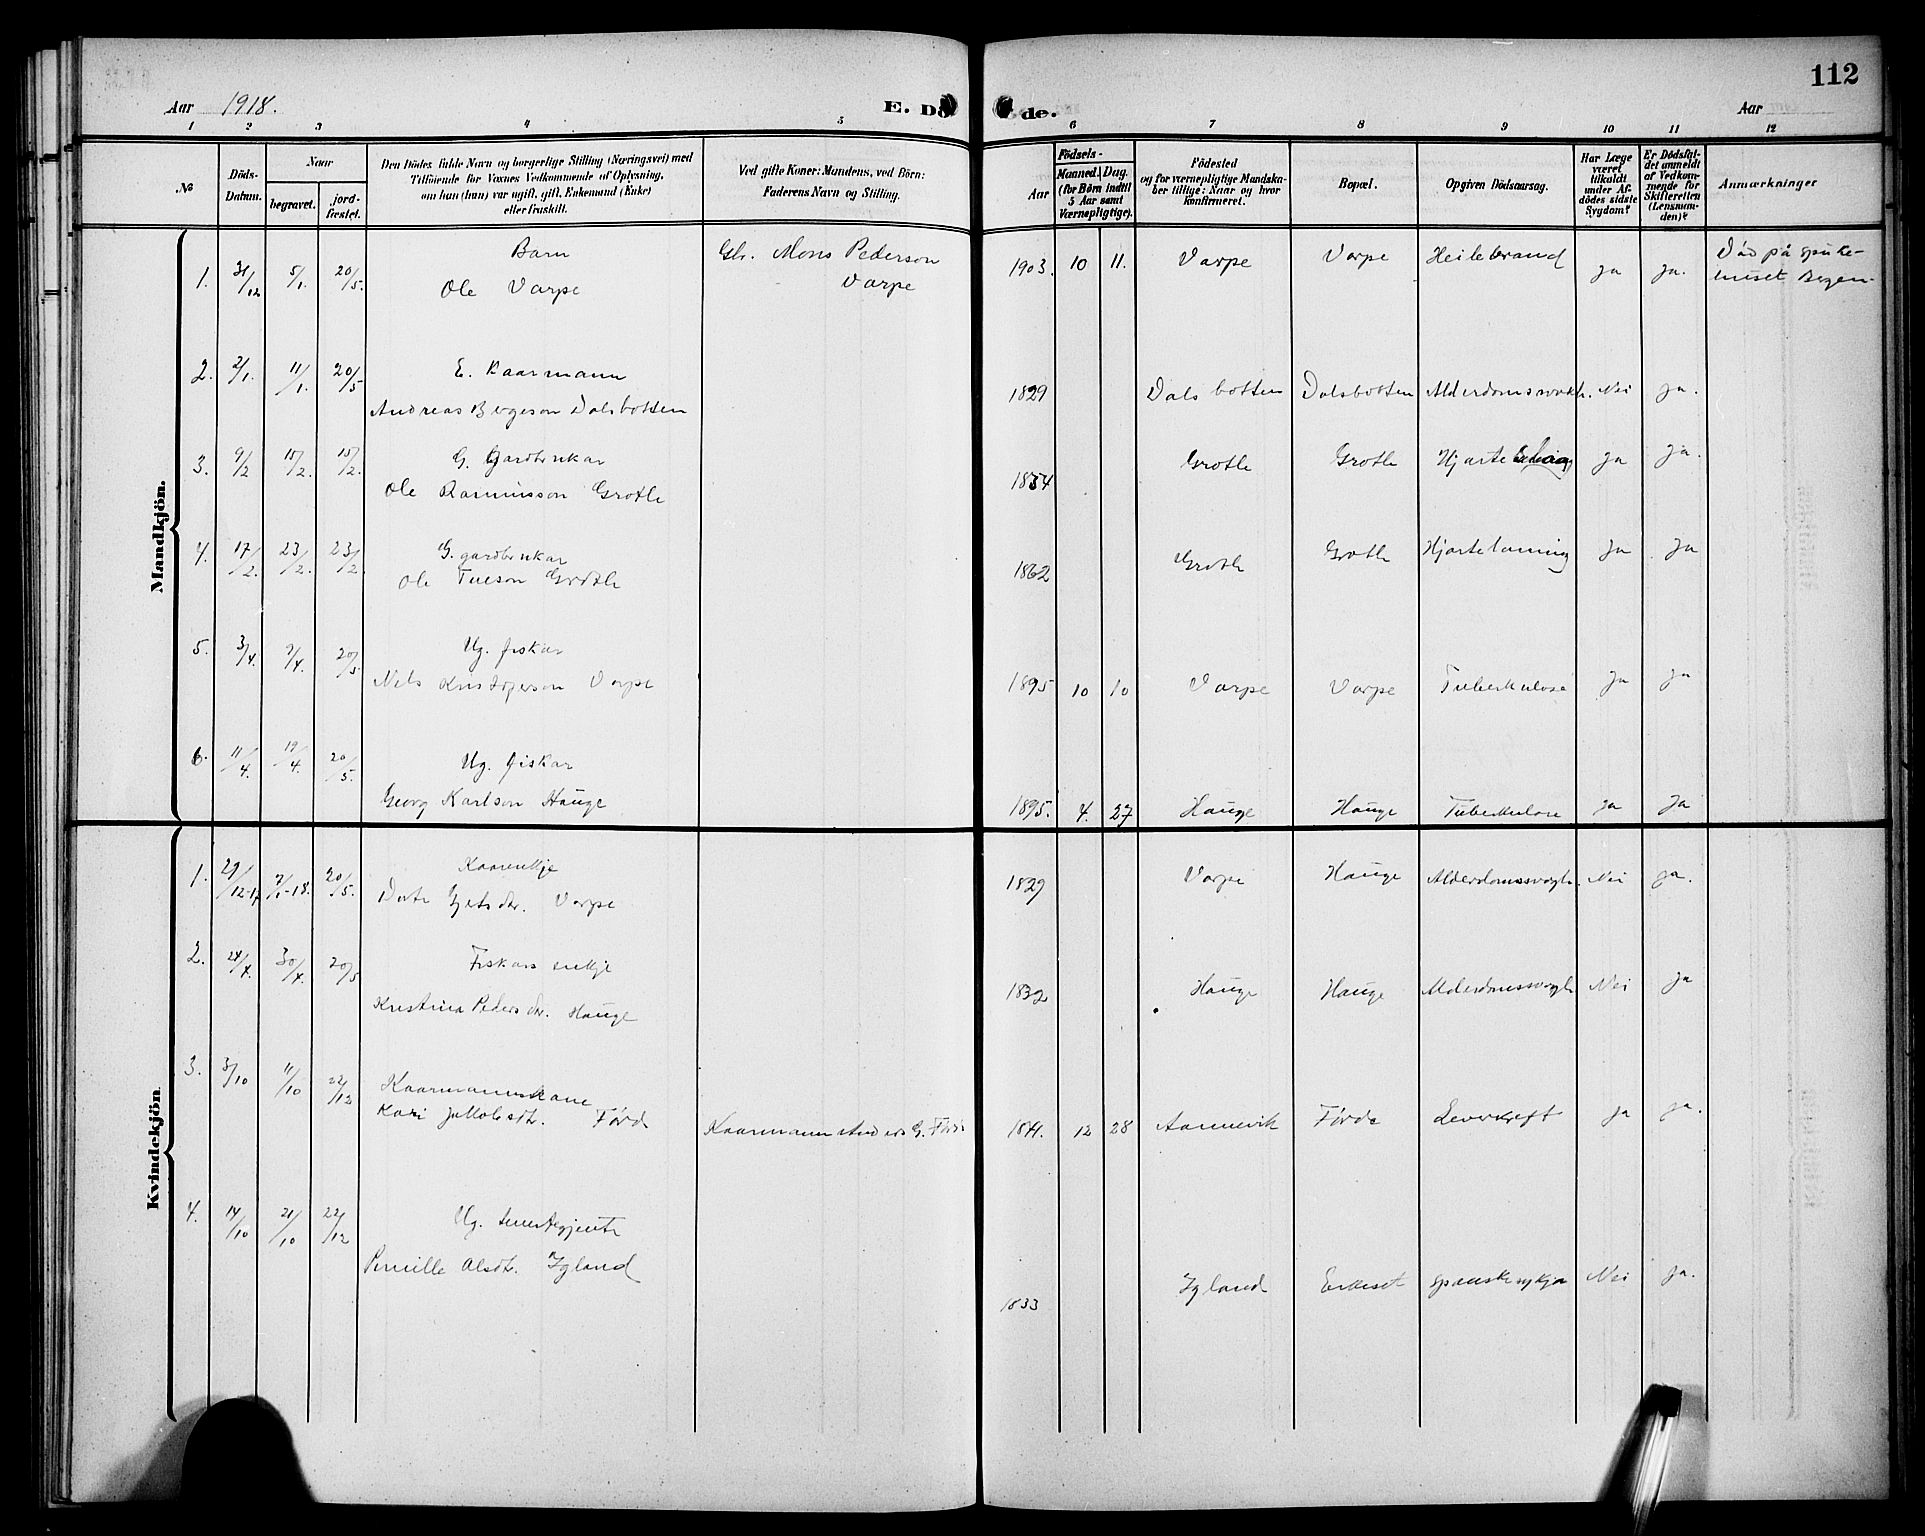 112
Aar 1918.
E. Dö
de.
Aar
1 2 3 4 5 6 7 8 9 10 11 12
No
Döds-Datum.
Naar
begravet.
jord-fæstet.
Den Dödes fulde Navn og borgerlige Stilling (Næringsvei) med
Tilföiende for Voxnes Vedkommende af Oplysning,
om han (hun) var ugift, gift, Enkemand (Enke)
eller fraskilt.
Ved gifte Koner: Mandens, ved Börn:
Faderens Navn og Stilling.
Födsels-
Aar
Maaned. Dag.
(for Börn indtil
5 Aar samt
Værnepligtige).
Födested
og for værnepligtige Mandska-
ber tillige: Naar og hvor
konfirmeret.
Bopæl.
Opgiven Dödsaarsag.
Har Læge
været
tilkaldt
under Af-
dödes sidste
Sygdom?
Er Dödsfal-
det anmeldt
af Vedkom-
mende for
Skifteretten
(Lensman-
den)?
Anmærkninger
Mandkjön.
1. 31/12 5/1. 20/5. Barn Gbr. Mons Pederson 1903. 10 11. Varpe Varpe Heilebrand ja ja. Død på sjuke-
Ole Varpe Varpe huset Bergen.
2. 2/1. 11/1. 20/5 E. Kaarmann
Andreas Dalsbotten 1829 Dalsbotten Dalsbotten Nei ja.
3. 9/2 15/2. 15/2. G. Gardbrukar
Ole Rasmusson Grotle 1854 Grotle Grotle ja ja.
4. 17/2. 23/2. 23/2. G. gardbrukar
Ole Grotle 1862 Grotle Grotle Hjartelamning ja ja
5. 3/4. 9/4. 20/5 Ug. fiskar
Nils Varpe 1895 10 10 Varpe Varpe Tuberkulose ja ja
6. 11/4. 19/4. 20/5. Ug. fiskar
Georg Karlson Hauge 1895. 4. 27 Hauge Hauge Tuberkulose ja ja
Kvindekjön
1. 29/12-17 7/1-18. 20/5. Kaarenkje
Varpe 1829 Varpe Hauge Nei ja.
2. 24/4. 30/4. 20/5 Fiskars enkje
Kristina Pedersdtr. Hauge 1832 Hauge Hauge Nei ja
3. 3/10 11/10 22/12 Kaarmannskone
Kari Førd Kaarmann Anders G. Førd 12 28 Aannevik Førde Leverkreft ja ja.
4. 14/10 21/10 22/12 Ug. tenestegjente
Pernille Olsdtr. Igland 1833 Igland Endeset spanskesykja Nei ja.